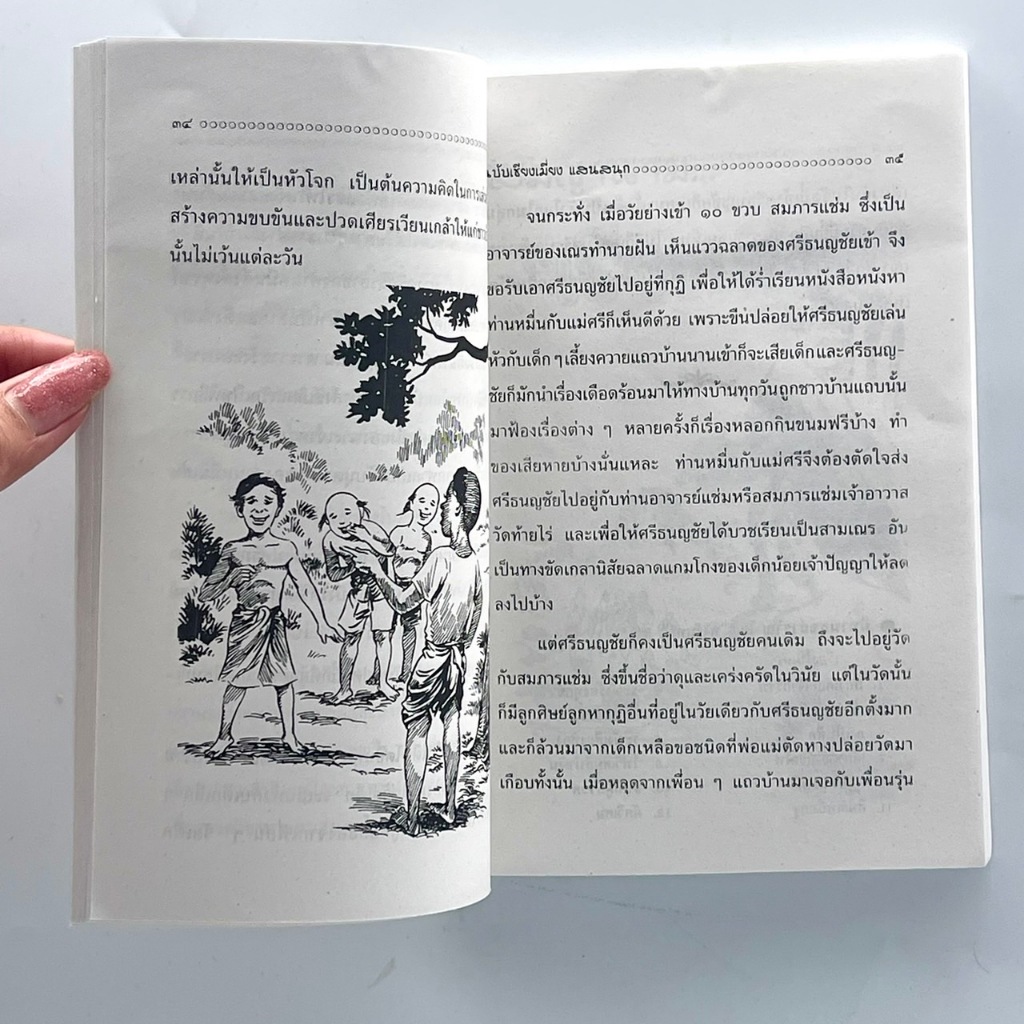 ๓๔
เหล่านั้นให้เป็นหัวโจก เป็นต้นความคิดในการ
สร้างความขบขันและปวดเศียรเวียนเกล้าให้แก่
นั้นไม่เว้นแต่ละวัน
ฉบับเชียงเมี่ยง แสนสนุก ๓๕
จนกระทั่ง เมื่อวัยย่างเข้า ๑๐ ขวบ สมภารแช่ม ซึ่งเป็น
อาจารย์ของเณรทำนายฝัน เห็นแววฉลาดของศรีธนญชัยเข้า จึง
ขอรับเอาศรีธนญชัยไปอยู่ที่กุฏิ เพื่อให้ได้ร่ำเรียนหนังสือหนังหา
ท่านหมื่นกับแม่ศรีก็เห็นดีด้วย เพราะขืนปล่อยให้ศรีธนญชัยเล่น
หัวกับเด็ก ๆ เลี้ยงควายแถวบ้านนานเข้าก็จะเสียเด็กและศรีธนญ-
ชัยก็มักนำเรื่องเดือดร้อนมาให้ทางบ้านทุกวันถูกชาวบ้านแถบนั้น
มาฟ้องเรื่องต่าง ๆ หลายครั้งก็เรื่องหลอกกินขนมฟรีบ้าง ทำ
ของเสียหายบ้างนั่นแหละ ท่านหมื่นกับแม่ศรีจึงต้องตัดใจส่ง
ศรีธนญชัยไปอยู่กับท่านอาจารย์แช่มหรือสมภารแช่มเจ้าอาวาส
วัดท้ายไร่ และเพื่อให้ศรีธนญชัยได้บวชเรียนเป็นสามเณร อัน
เป็นทางขัดเกลานิสัยฉลาดแกมโกงของเด็กน้อยเจ้าปัญญาให้ลด
ลงไปบ้าง
แต่ศรีธนญชัยก็คงเป็นศรีธนญชัยคนเดิม ถึงจะไปอยู่วัด
กับสมภารแช่ม ซึ่งขึ้นชื่อว่าดุและเคร่งครัดในวินัย แต่ในวัดนั้น
ก็มีลูกศิษย์ลูกหากุฏิอื่นที่อยู่ในวัยเดียวกับศรีธนญชัยอีกตั้งมาก
และก็ล้วนมาจากเด็กเหลือขอชนิดที่พ่อแม่ตัดหางปล่อยวัดมา
เกือบทั้งนั้น เมื่อหลุดจากเพื่อน ๆ แถวบ้านมาเจอกับเพื่อนรุ่น